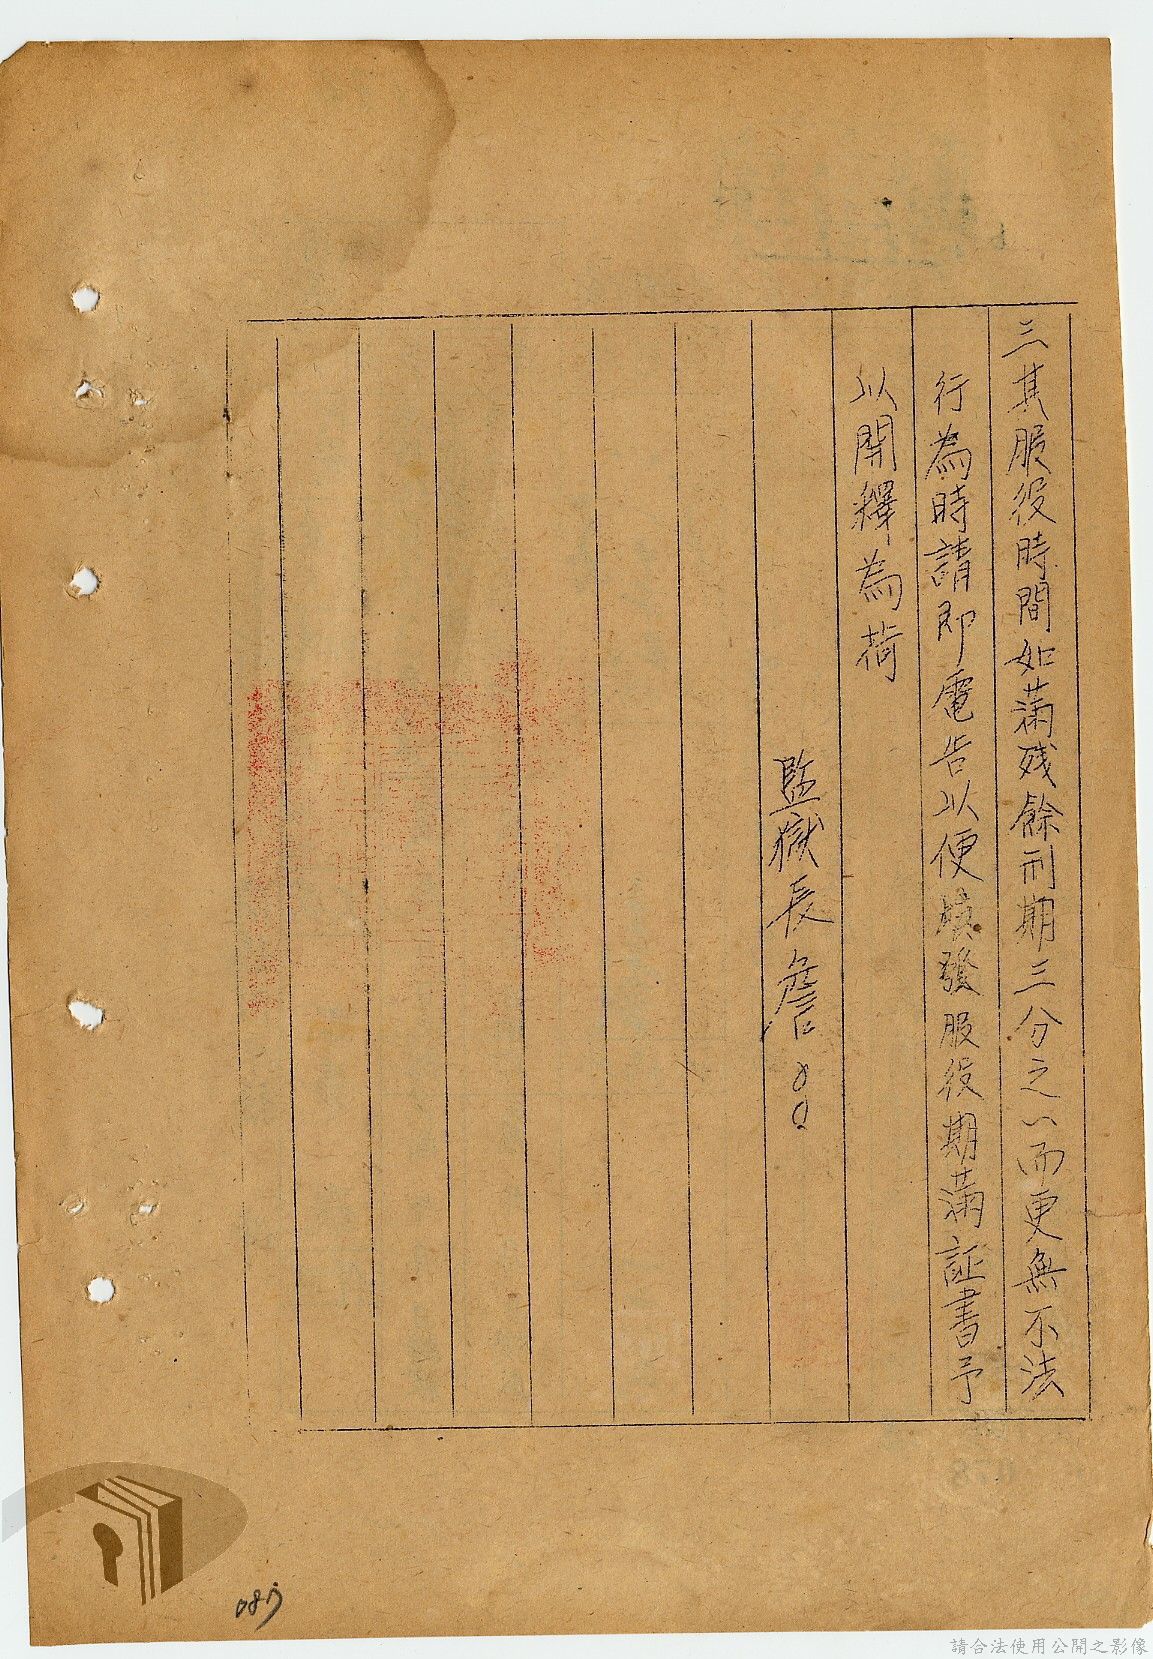 三其服役時間如滿残餘刑期三分之以而更無不法
行為時請即電告以便填發服役期滿証書予
以開釋為荷
監獄長詹○○
087
請合法使用公開之影像